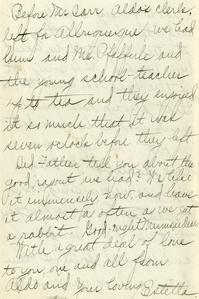 Before Mr Sarr, Aldo's clerk,
left for Albuquerque we had
him and Mr. Pfefferle and
the young school-teacher
up to tea and they enjoyed
it so much that it was
seven oclock before they left
Did Father tell you about the
good rabbit we had? We like
it immensely now, and have
it almost as often as we get
a rabbit. Good-night
With a great deal of love
to you, one and all from
Aldo and your loving Estella